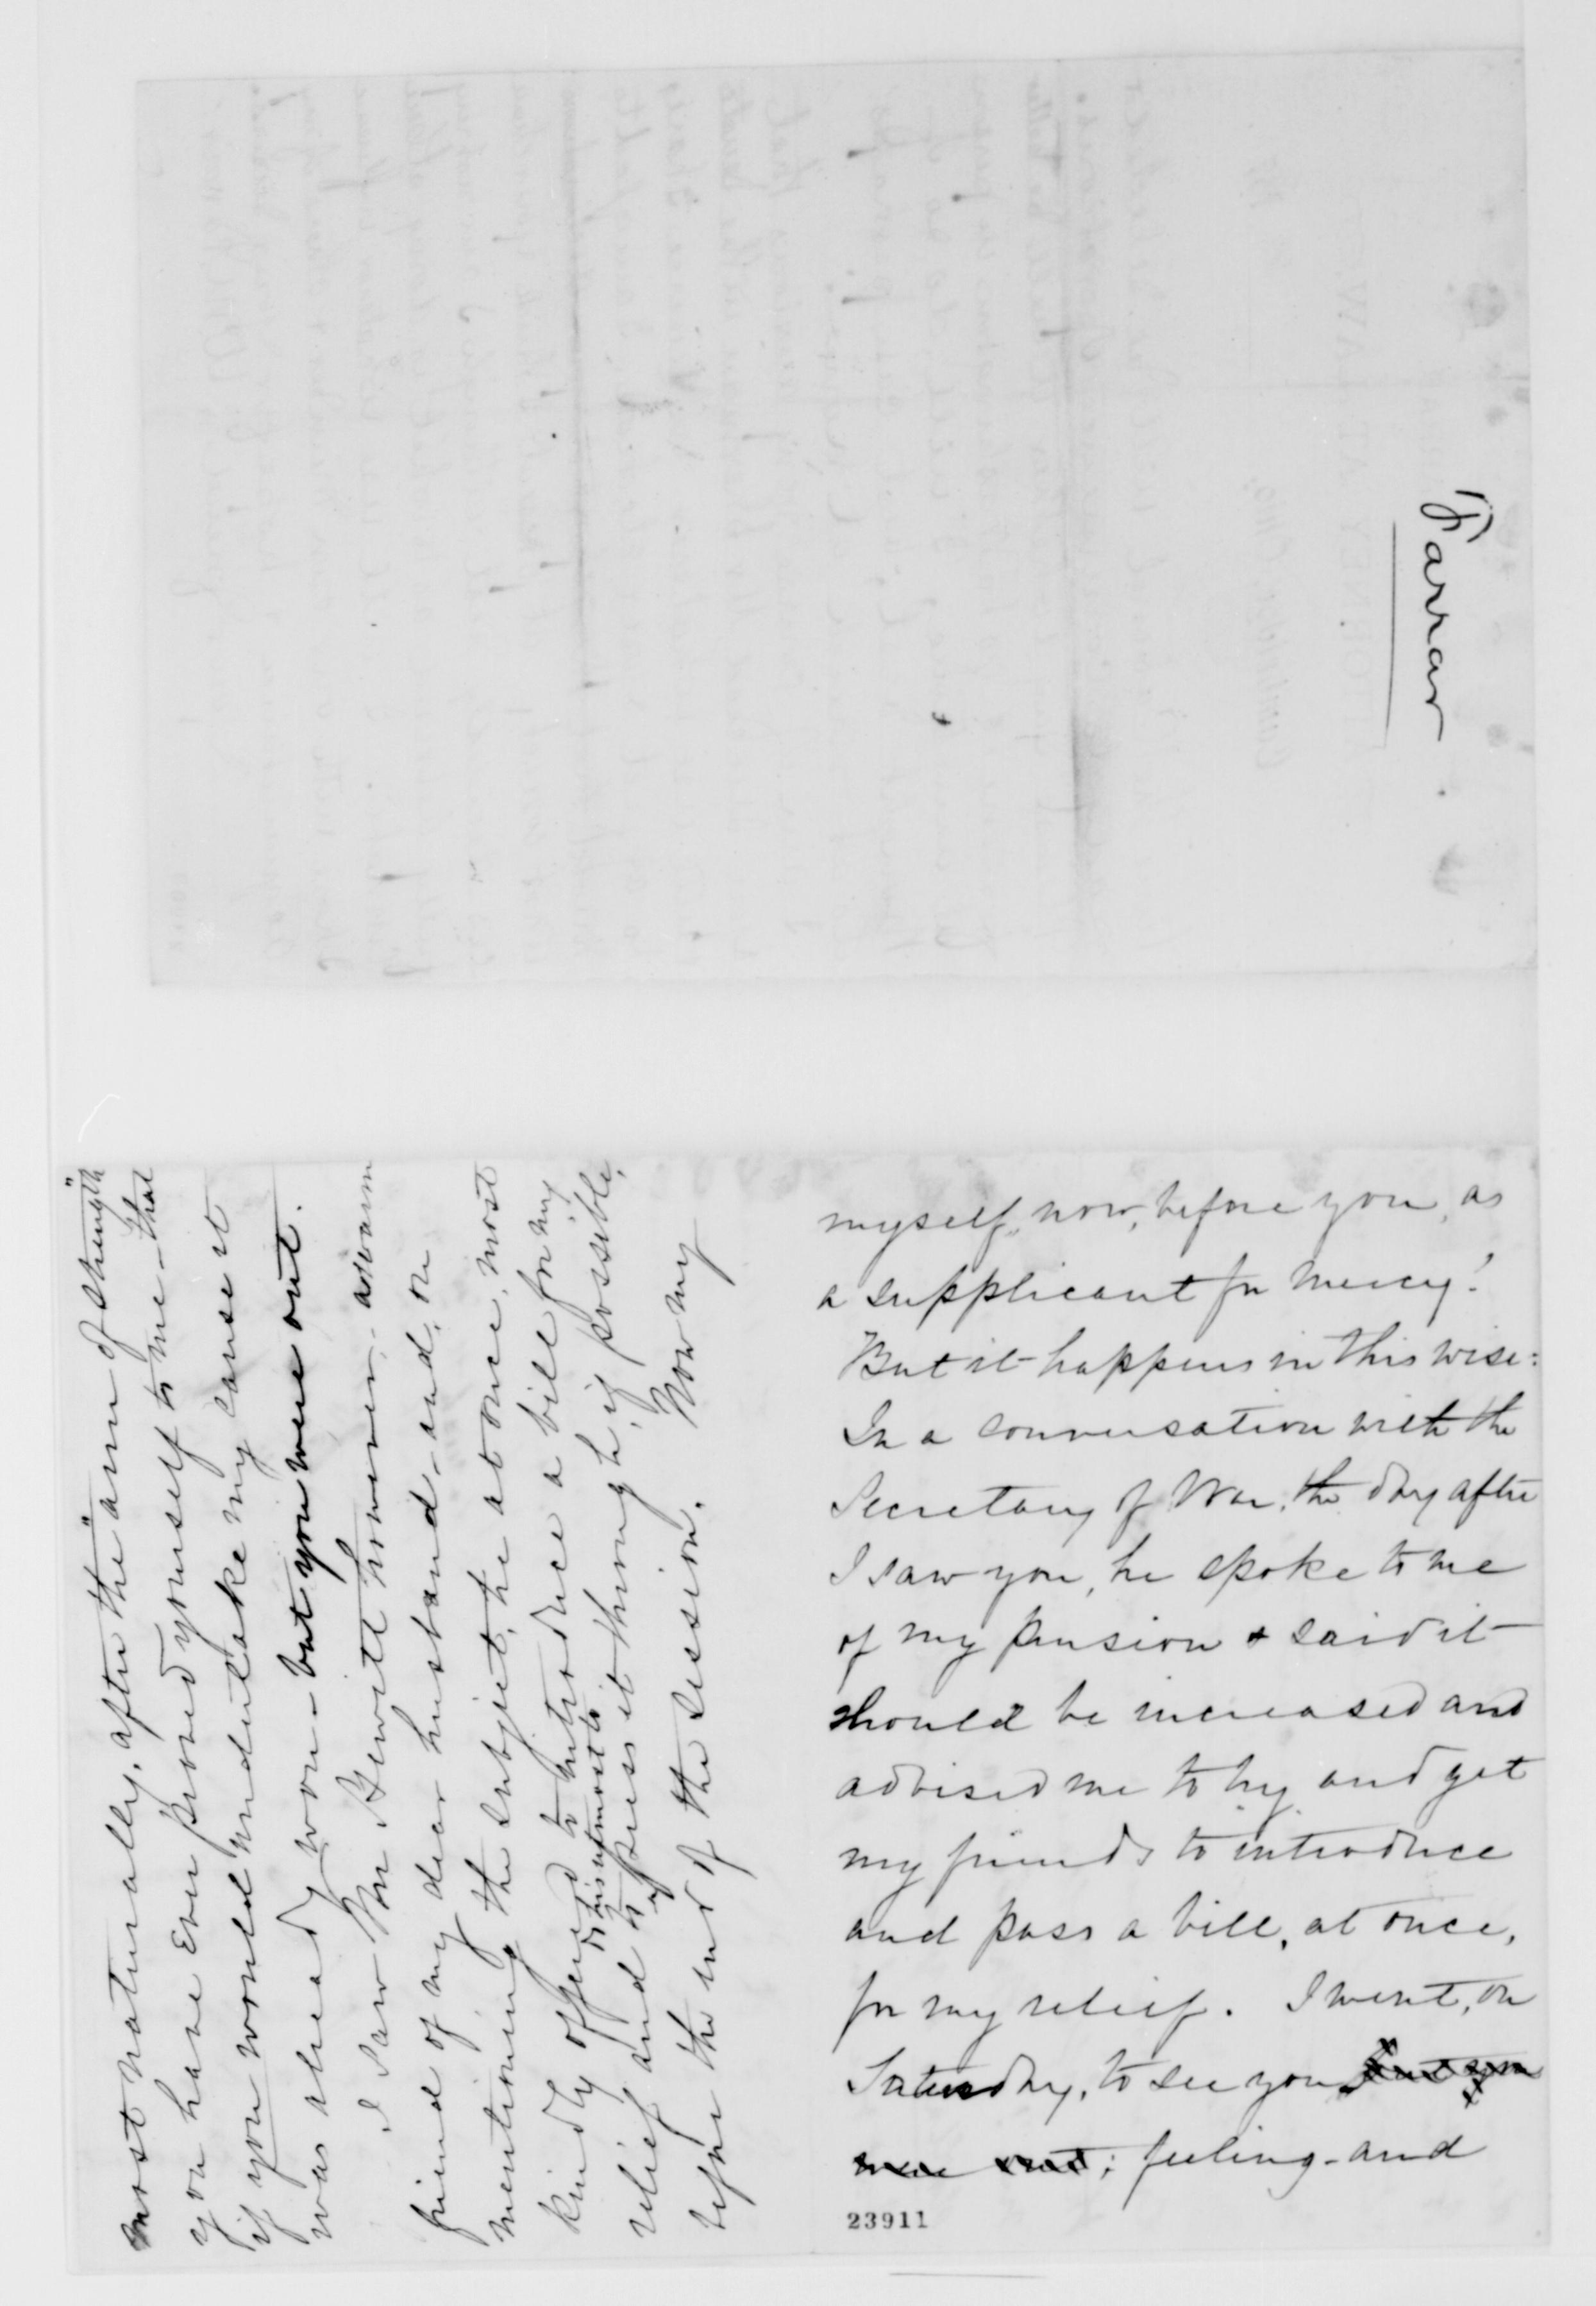 Farrar.
myself, now, before you, as
a supplicant for mercy!
But it happens in this wise:
In a conversation with the
Secretary of War, the day after
I saw you, he spoke to me
of my pension & said it
should be increased and
advised me to try and get
my friends to introduce
and pass a bill, at once,
for my relief. I went, on
Saturday, to see you but you
were out; feeling - and
23911
most naturally, after the "arm of strength"
you have ever proved yourself to me - that
if you would undertake my cause it
was already won - but you were out.
I saw Mr Hewitt however - a warm
friend of my dear husband - and, on
mentioning the subject, he at once, most
kindly offered to introduce a bill for my
relief and to do his utmost to press it through, if possible,
before the end of the session. Now my